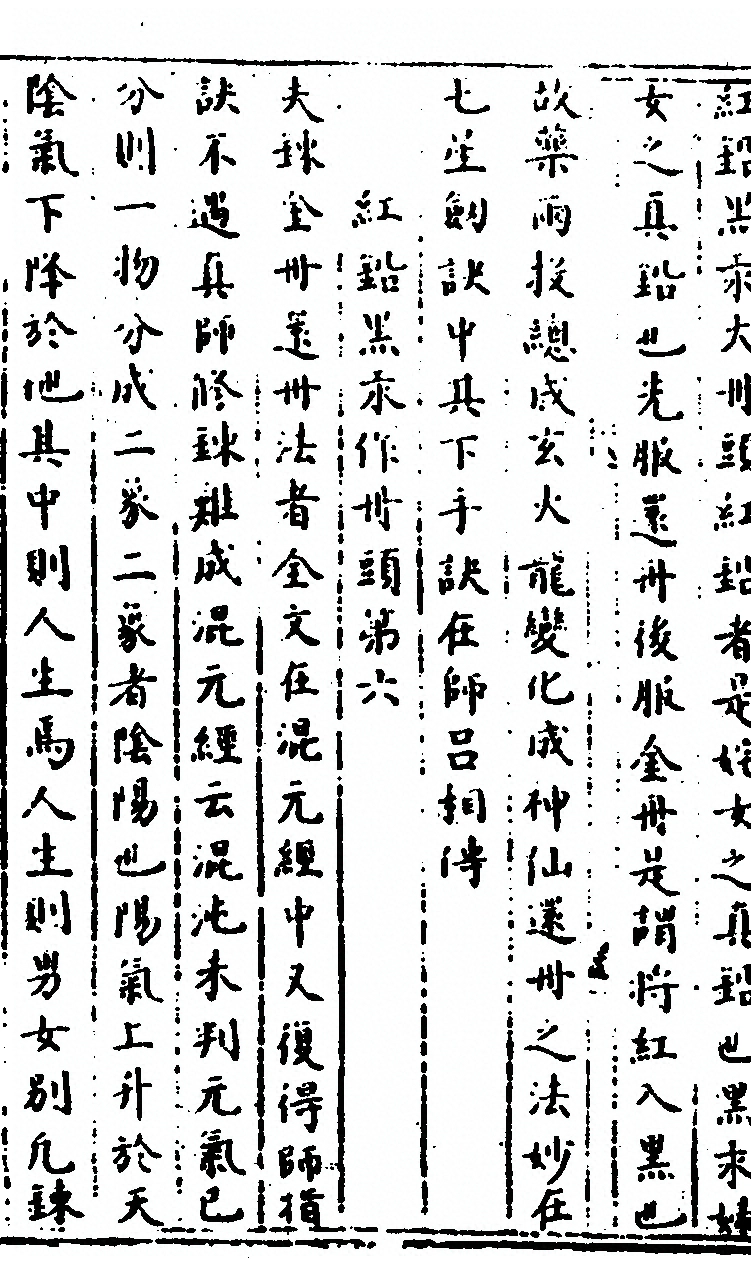 紅鉛黑汞大丹頭紅鉛者是姹女之真鉛也黑汞
女之真鉛也先服還丹後服金丹是謂将紅入黑也
故藥兩投總成玄火龍變化成神仙還丹之法妙在
七星劍訣中其下手訣在師口相傳
紅鉛黑汞作丹頭第六
夫鍊金丹還丹法者全文在混元經中又復得師指
訣不遇真師修鍊難成混元經云混沌未判元氣已
分則一物分成二象二象者陰陽也陽氣上升於天
陰氣下降於地其中則人生焉人生則男女別凡鍊